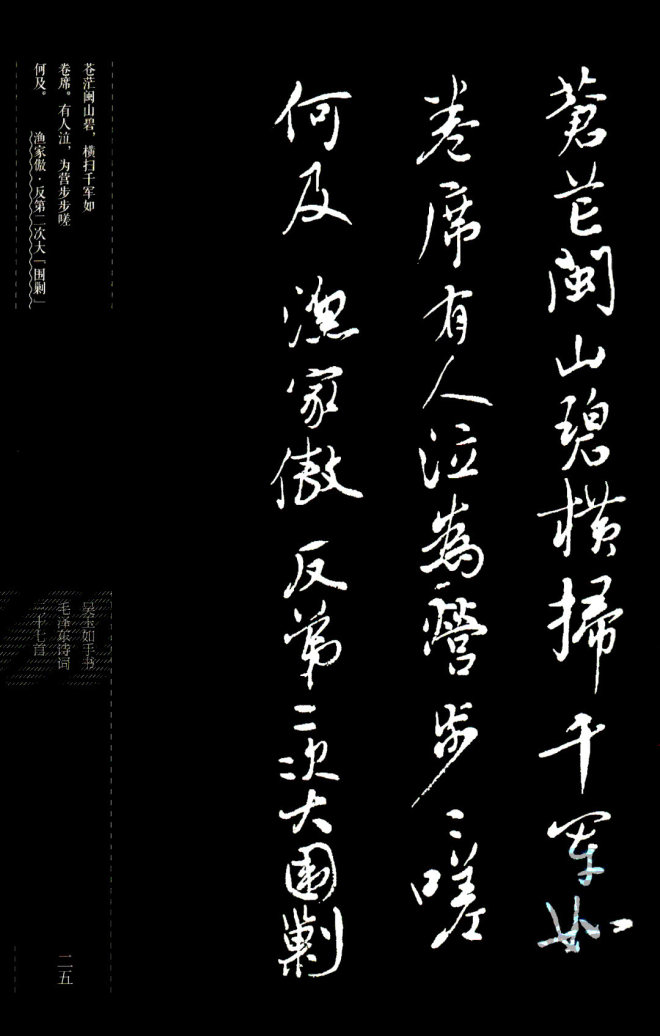 蒼茫閩山碧橫掃千軍如
卷席有人泣為營步〻嗟
何及 漁家傲 反第二次大圍剿
苍茫闽山碧，横扫千军如
卷席。有人泣，为营步步嗟
何及。 渔家傲·反第二次大「围剿」
吴玉如手书
毛泽东诗词
二十七首
二五